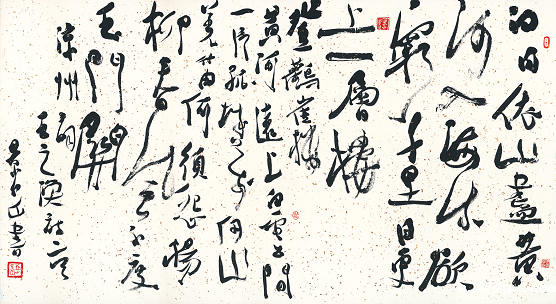 白日依山盡黄
河入海流欲
窮千里目更
上一層樓
登鸛雀樓
黄河遠上白雲間
一片孤城万仞山
羌笛何須怨楊
柳春風不度
玉門關
凉州詞
王之渙詩二首
書